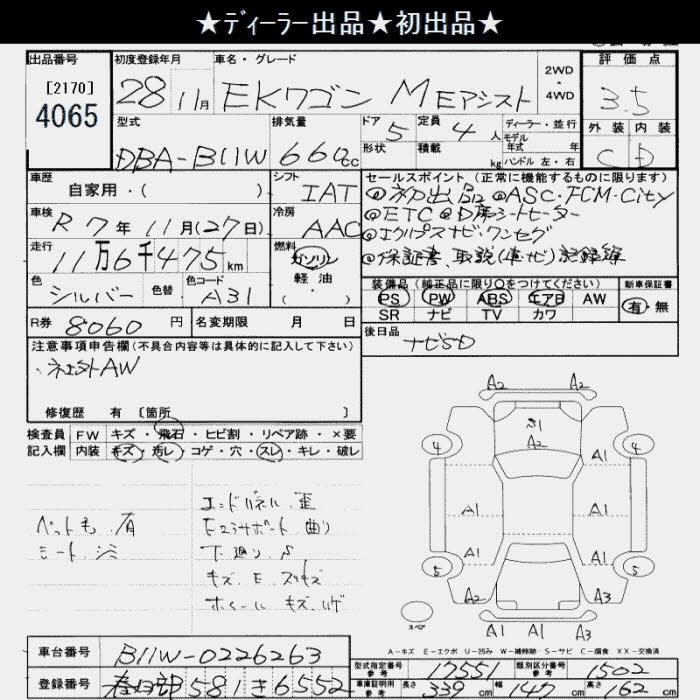 ★ディーラー出品★初出品★
出品番号
[2170]
4065
初度登録年月
28年11月
車名・グレード
EKワゴン MEアシスト
2WD・4WD
評価点
3.5
外装 内装
C D
型式
DBA-B11W
排気量
660cc
ドア 5
形状
定員 4人
積載 kg
ディーラー・並行
モデル年式 年
ハンドル 左・右
車歴
自家用・( )
シフト
IAT
車検
R7年11月(27日)
冷房
AAC
走行
11万6千475km
燃料
ガソリン
軽油
( ・ )
色
シルバー
色替
色コード
A31
R券 8060円
名変期限 月 日
セールスポイント(正常に機能するものに限ります)
@初出品 @ASC・FCM-City
@ETC @D席シートヒーター
@エクリプスナビ・ワンセグ
@保証書、取説(車・ナビ)記録簿
装備品(純正品に限り○をつけてください)
PS PW ABS エアB AW
SR ナビ TV カワ
新車保証書
有・無
後日品
ナビSD
注意事項申告欄(不具合内容等は具体的に記入して下さい)
・社外AW
修復歴 有 [箇所 ]
検査員記入欄
FW キズ・飛石・ヒビ割・リペア跡・×要
内装 キズ・汚レ・コゲ・穴・スレ・キレ・破レ
ペット毛 有
シート シミ
エンドパネル 歪
Fコアサポート 曲り
下廻り S
キズ、E、スリキズ
ホイール キズ、ハゲ
A2 A2
A2
4 4
A1 A1
A1 A1
A1 A1
5 5
A2 A3
A1 A1 A3
スペア
A-キズ E-エクボ U-凹み W-補修跡 S-サビ C-腐食 XX-交換済
車台番号
B11W-0226263
登録番号
春日部 581 さ 6552
型式指定番号 参考
17551
類別区分番号 参考
1502
車庫証明用 参考
長さ 339cm 幅 147cm 高さ 162cm